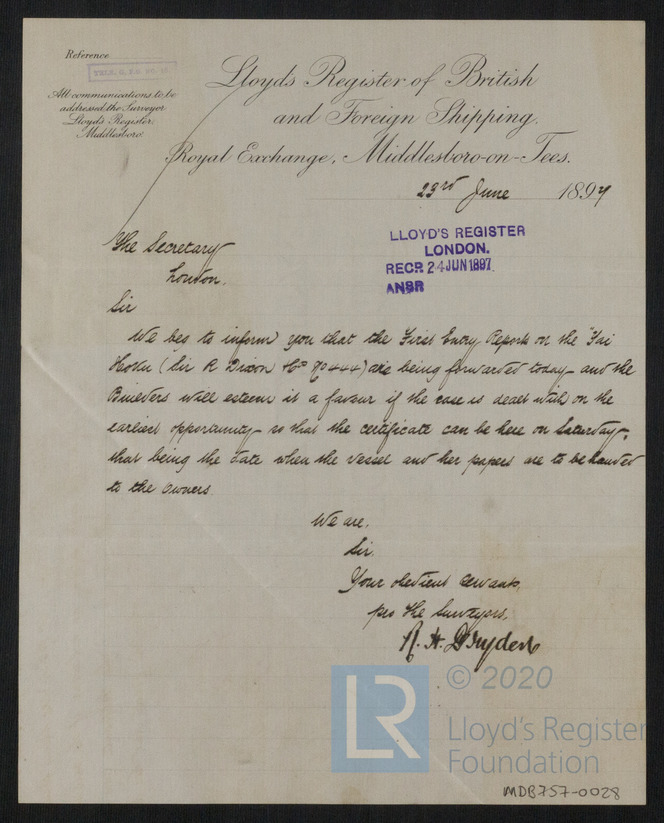 Reference
All communications to be
addressed the Surveyor
Lloyds Register,
Middlesboro'
Lloyds Register of British
and Foreign Shipping.
Royal Exchange, Middlesboro-on-Tees.
23rd June 1897
LLOYD'S REGISTER
LONDON.
RECD. 24 JUN 1897
ANSR
The Secretary
London.
Sir
We beg to inform you that the First Entry Reports on the "Tai
(Sir R Dixon No 444) are being forwarded today and the
Builders will esteem it a favour if the case is dealt with on the
earliest opportunity so that the certificate can be here on Saturday,
that being the date when the vessel and her papers are to be handed
to the Owners.
We are,
Sir,
Your obedient Servants,
pro the Surveyors,
R. H. Dryden
© 2020
LR
Lloyd's Register
Foundation
MDB757-0028